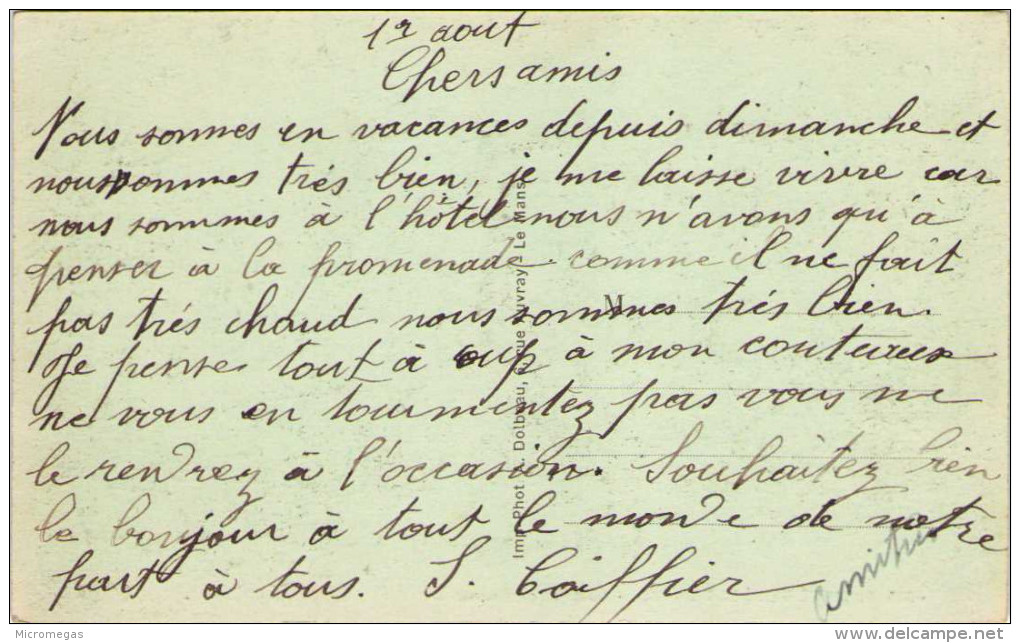 1r aout
Chers amis
Nous sommes en vacances depuis dimanche et
nous sommes trés bien, je me laisse vivre car
nous sommes à l'hôtel nous n'avons qu'à
penser à la promenade. comme il ne fait
pas trés chaud nous sommes trés bien.
Je pense tout à coup à mon
ne vous en tourmentez pas vous me
le rendrez à l'occasion. Souhaitez bien
le bonjour à tout le monde de notre
part à tous. S. Coiffier
amitié
M
Imp. Phot. Dolbeau, rue Auvray - Le Mans
Micromegas
delcampe.net